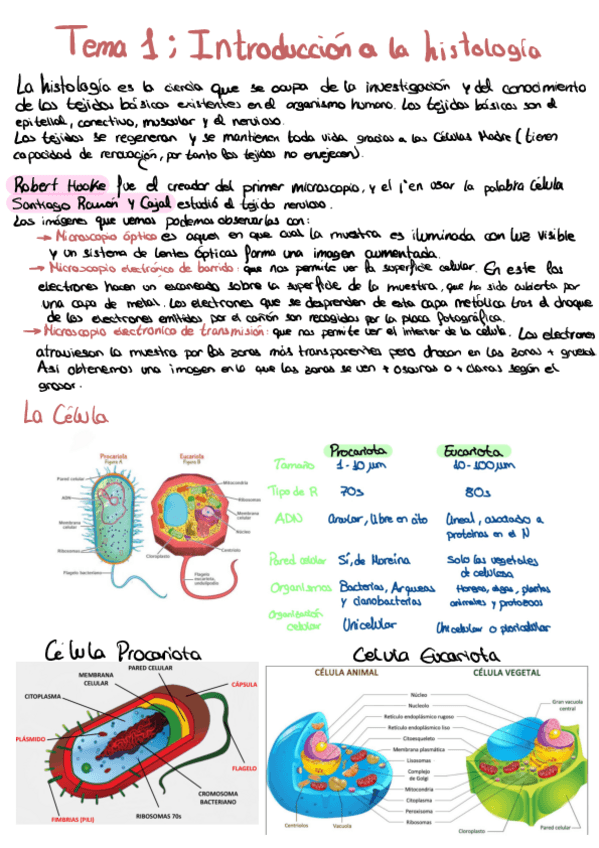 Tema 1; Introducción a la histología
La histología es la ciencia que se ocupa de la investigación y del conocimiento
de los tejidos básicos existentes en el organismo humano. Los tejidos básicos son el
epitelial, conectivo, muscular y el nervioso.
Los tejidos se regeneran y se mantienen toda vida gracias a las Células Madre (tienen
capacidad de renovación, por tanto los tejidos no envejecen).
Robert Hooke fue el creador del primer microscopio, y el 1º en usar la palabra Célula
Santiago Ramón y Cajal estudió el tejido nervioso.
Las imágenes que vemos podemos observarlas con:
→ Microscopio óptico es aquel en que cual la muestra es iluminada con luz visible
y un sistema de lentes ópticas forma una imagen aumentada.
→ Microscopio electrónico de barrido: que nos permite ver la superficie celular. En este los
electrones hacen un escaneado sobre la superficie de la muestra, que ha sido cubierta por
una capa de metal. Los electrones que se desprenden de esta capa metálica tras el choque
de los electrones emitidos por el cañón son recogidos por la placa fotográfica.
→ Microscopio electronico de transmisión: que nos permite ver el interior de la celula. Los electrones
atraviesan la muestra por las zonas más transparentes pero chocan en las zonas + gruesas
Así obtenemos una imagen en la que las zonas se ven + oscuras o + claras según el
grosor.
La Célula
Procariota Eucariota
Tamaño 1-10 µm 10-100µm
Tipo de R 70s 80s
ADN circular, libre en cito lineal, asociado a
proteínas en el N
Pared celular Sí, de Moreína Solo las vegetales
de celulosa
Organismos Bacterias, Arqueas Hongos, algas, plantas
y cianobacterias animales y protozoos
Organización
celular Unicelular Unicelular o pluricelular
Procariota
Figura A
Eucariota
Figura B
Pared celular
ADN
Membrana
celular
Ribosomas
Flagelo bacteriano
Mitocondria
Ribosomas
Membrana
celular
Núcleo
Centriolo
Cloroplasto
Flagelo
eucariota,
undulipodio
Célula Procariota
PARED CELULAR
MEMBRANA
CELULAR
CITOPLASMA
CÁPSULA
PLÁSMIDO
FLAGELO
CROMOSOMA
BACTERIANO
RIBOSOMAS 70s
FIMBRIAS (PILI)
Celula Eucariota
CÉLULA ANIMAL CÉLULA VEGETAL
Núcleo
Nucleolo
Retículo endoplásmico rugoso
Retículo endoplásmico liso
Citoesqueleto
Membrana plasmática
Lisosomas
Complejo
de Golgi
Mitocondria
Citoplasma
Peroxisoma
Ribosomas
Gran vacuola
central
Centriolos
Vacuola
Cloroplasto
Pared celular